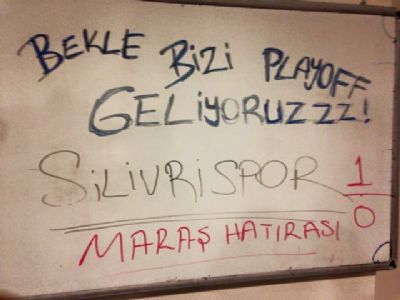 BEKLE BİZİ PLAYOFF
GELİYORUZZZ!
SİLİVRİSPOR 1
0
MARAŞ HATIRASI